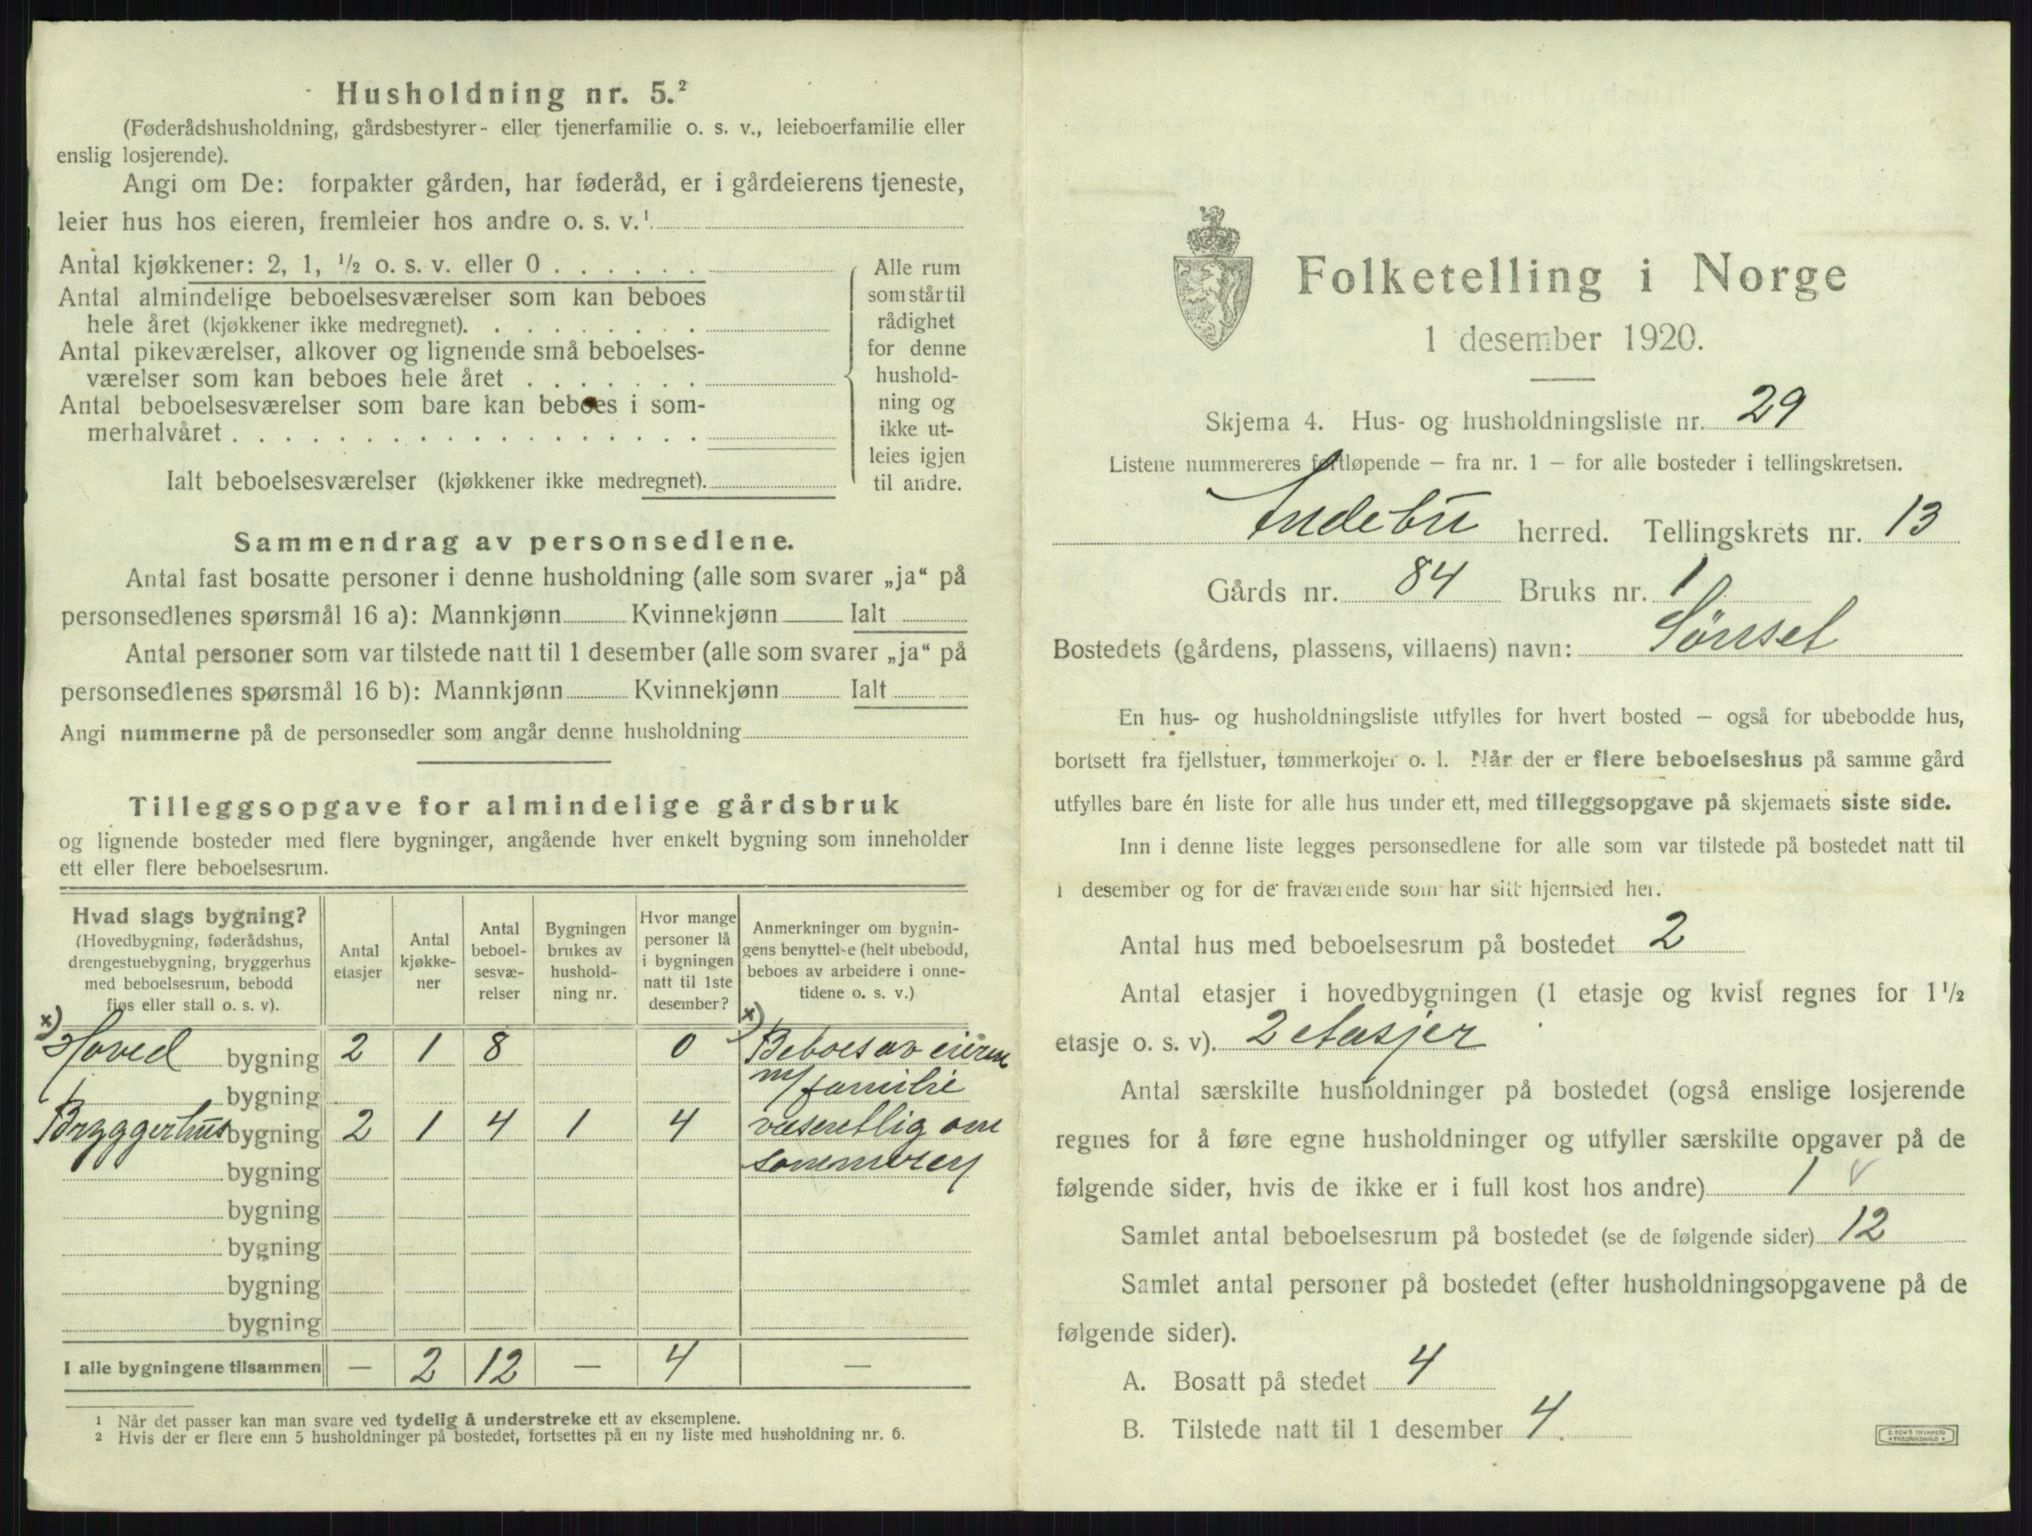 Husholdning nr. 5.²
(Føderådshusholdning, gårdsbestyrer- eller tjenerfamilie o. s. v., leieboerfamilie eller
enslig losjerende).
Angi om De: forpakter gården, har føderåd, er i gårdeierens tjeneste,
leier hus hos eieren, fremleier hos andre o. s. v.¹
Antal kjøkkener: 2, 1, ½ o. s. v. eller 0 . . . . . .
Antal almindelige beboelsesværelser som kan beboes
hele året (kjøkkener ikke medregnet). . . . . . . . .
Antal pikeværelser, alkover og lignende små beboelses-
værelser som kan beboes hele året . . . . . . .
Antal beboelsesværelser som bare kan beboes i som-
merhalvåret . . . . . . . . . . . . . . . . . .
Ialt beboelsesværelser (kjøkkener ikke medregnet).
Alle rum
som står til
rådighet
for denne
hushold-
ning og
ikke ut-
leies igjen
til andre.
Sammendrag av personsedlene.
Antal fast bosatte personer i denne husholdning (alle som svarer „ja“ på
personsedlenes spørsmål 16 a): Mannkjønn Kvinnekjønn Ialt
Antal personer som var tilstede natt til 1 desember (alle som svarer „ja“ på
personsedlenes spørsmål 16 b): Mannkjønn Kvinnekjønn Ialt
Angi nummerne på de personsedler som angår denne husholdning
Tilleggsopgave for almindelige gårdsbruk
og lignende bosteder med flere bygninger, angående hver enkelt bygning som inneholder
ett eller flere beboelsesrum.
Hvad slags bygning?
(Hovedbygning, føderådshus,
drengestuebygning, bryggerhus
med beboelsesrum, bebodd
fjøs eller stall o. s. v).
Antal
etasjer
Antal
kjøkke-
ner
Antal
beboel-
sesvæ-
relser
Bygningen
brukes av
hushold-
ning nr.
Hvor mange
personer lå
i bygningen
natt til 1ste
desember?
Anmerkninger om bygnin-
gens benyttelse (helt ubebodd,
beboes av arbeidere i onne-
tidene o. s. v.)
x) Hoved bygning 2 1 8 0 x) Beboes av eieren
bygning m/ familie
Bryggerhus bygning 2 1 4 1 4 væsentlig om
bygning sommeren
bygning
bygning
bygning
bygning
I alle bygningene tilsammen — 2 12 — 4 —
1 Når det passer kan man svare ved tydelig å understreke ett av eksemplene.
2 Hvis der er flere enn 5 husholdninger på bostedet, fortsettes på en ny liste med husholdning nr. 6.
Folketelling i Norge
1 desember 1920.
Skjema 4. Hus- og husholdningsliste nr. 29
Listene nummereres fortløpende – fra nr. 1 – for alle bosteder i tellingskretsen.
Andebu herred. Tellingskrets nr. 13
Gårds nr. 84 Bruks nr. 1
Bostedets (gårdens, plassens, villaens) navn: Sønset
En hus- og husholdningsliste utfylles for hvert bosted – også for ubebodde hus,
bortsett fra fjellstuer, tømmerkojer o. l. Når der er flere beboelseshus på samme gård
utfylles bare én liste for alle hus under ett, med tilleggsopgave på skjemaets siste side.
Inn i denne liste legges personsedlene for alle som var tilstede på bostedet natt til
1 desember og for de fraværende som har sitt hjemsted her.
Antal hus med beboelsesrum på bostedet 2
Antal etasjer i hovedbygningen (1 etasje og kvist regnes for 1½
etasje o. s. v). 2 etasjer
Antal særskilte husholdninger på bostedet (også enslige losjerende
regnes for å føre egne husholdninger og utfyller særskilte opgaver på de
følgende sider, hvis de ikke er i full kost hos andre) 1
Samlet antal beboelsesrum på bostedet (se de følgende sider) 12
Samlet antal personer på bostedet (efter husholdningsopgavene på de
følgende sider).
A. Bosatt på stedet 4
B. Tilstede natt til 1 desember 4.